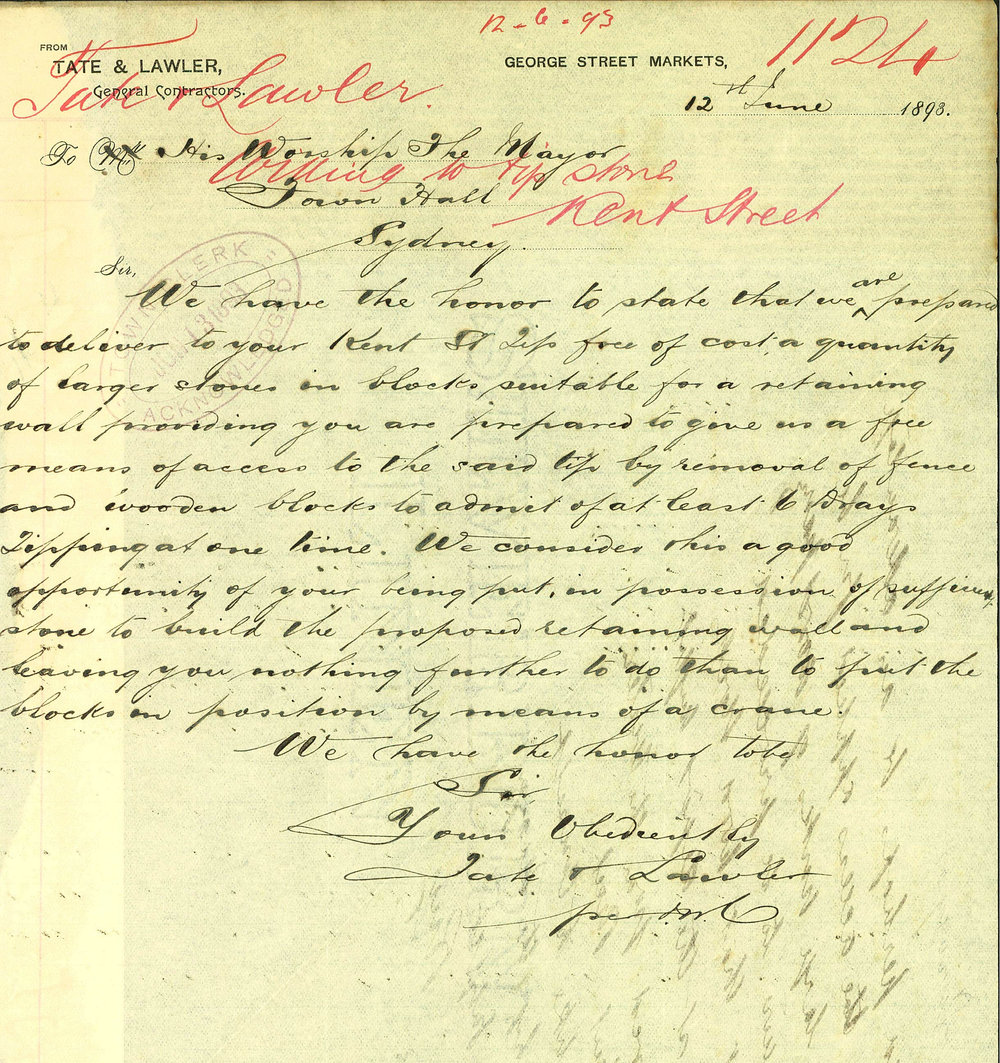 12-6-93
1124
FROM
TATE & LAWLER,
General Contractors.
Tate & Lawler.
GEORGE STREET MARKETS,
12th June 1893.
To His Worship The Mayor
Willing to tip stone
Town Hall
Kent Street
Sydney.
Sir,
TOWN CLERK
ACKNOWLEDGED
We have the honor to state that we are prepared
to deliver to your Kent St Tip free of cost, a quantity
of larger stones in blocks suitable for a retaining
wall providing you are prepared to give us a free
means of access to the said tip by removal of fence
and wooden blocks to admit of at least 6 Drays
Tipping at one time. We consider this a good
opportunity of your being put, in possession of sufficient
stone to build the proposed retaining wall and
leaving you nothing further to do than to put the
blocks in position by means of a crane.
We have the honor to be
Sir
Yours Obediently
Tate & Lawler
per